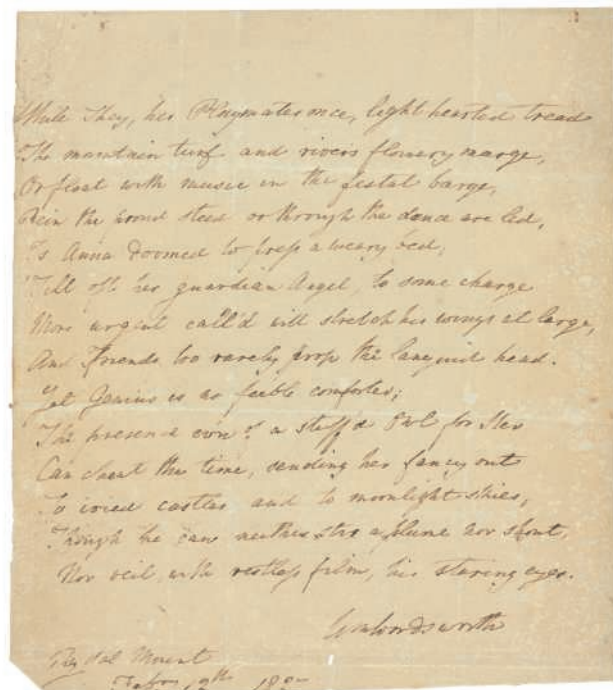 While They, her Playmates once, light hearted tread
The mountain turf and river's flowery marge,
Or float with music in the festal barge,
Rein the proud steed or through the dance are led,
Is Anna doomed to press a weary bed,
Till oft her guardian Angel, to some charge
More urgent call'd will stretch his wings at large,
And Friends too rarely prop the languid head.
Yet Genius is no feeble comforter;
The presence even of a stuff'd Owl for Her
Can cheat the time, sending her fancy out
To ivied castles and to moonlight skies,
Though he can neither stir a plume nor shout,
Nor veil, with restless film, his staring eyes.
Wm Wordsworth
Rydal Mount